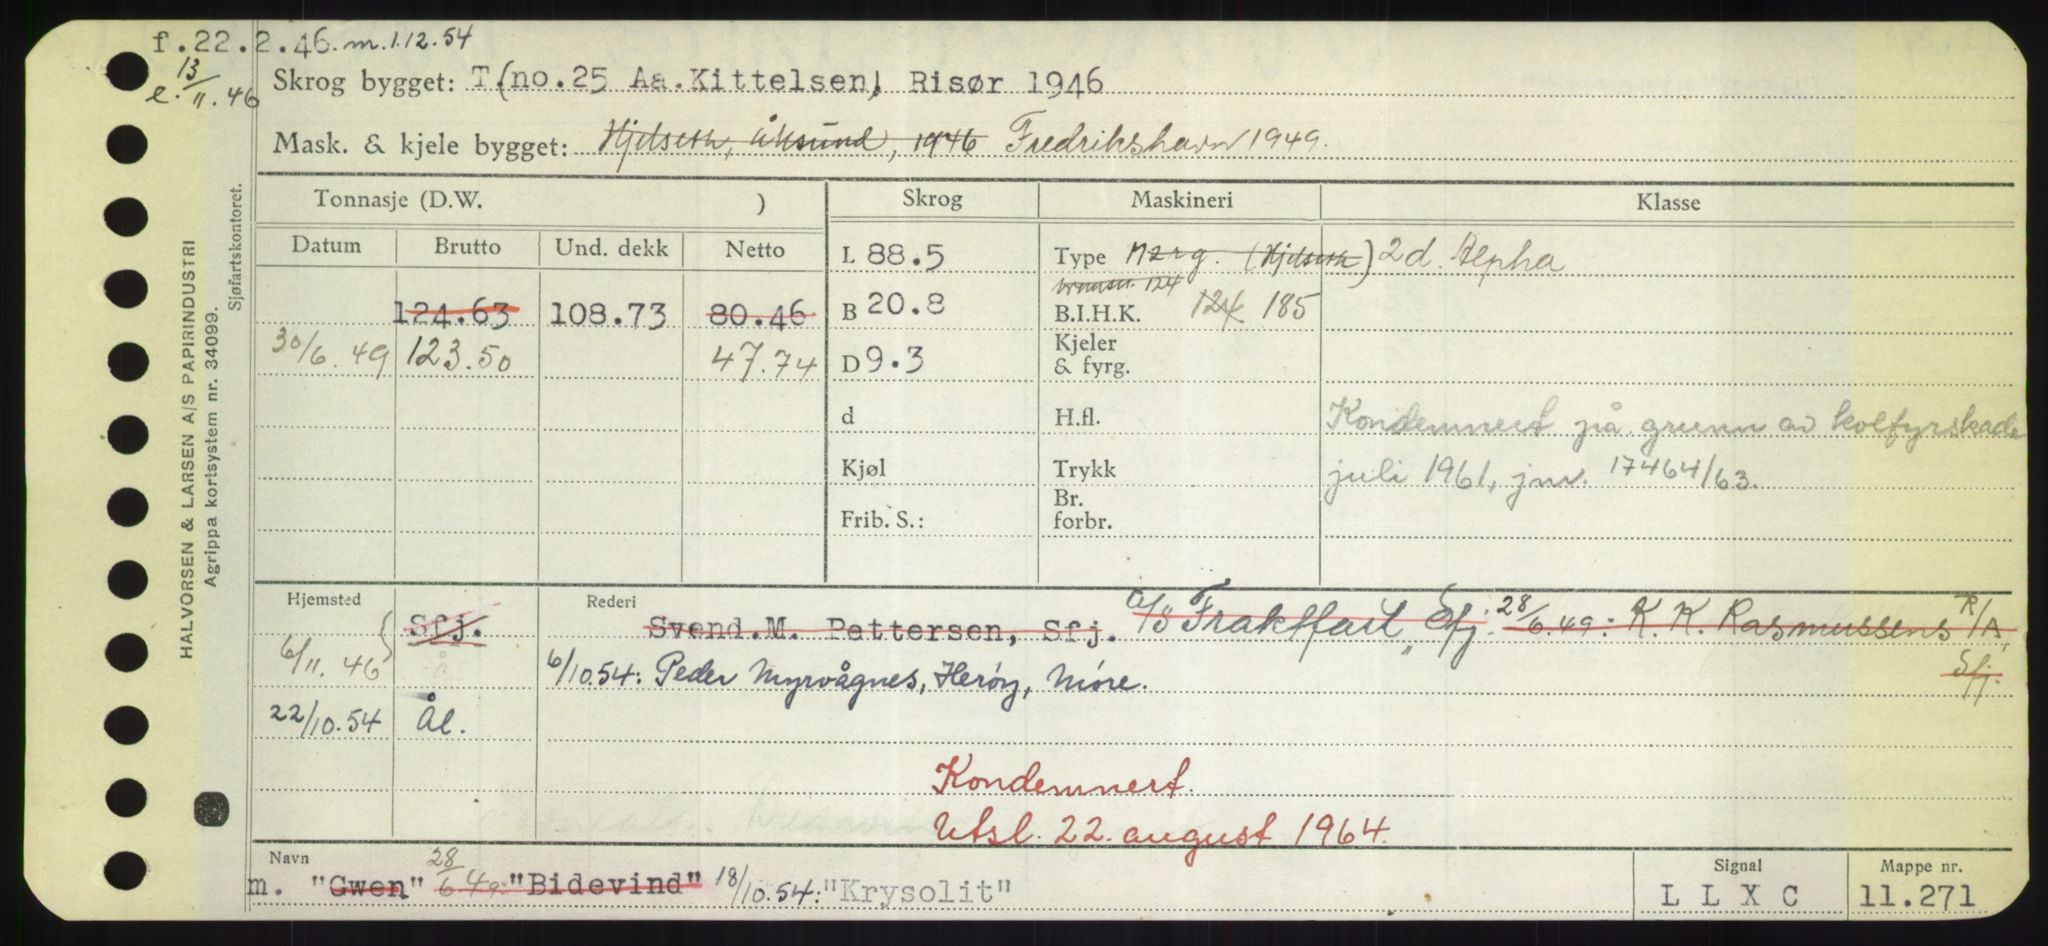 f.22.2.46. m.1.12.54
e. 13/11.46
Skrog bygget: T.(no.25 Aa.Kittelsen), Risør 1946
Mask. & kjele bygget: Hjelseth, 1946 Fredrikshavn 1949.
Tonnasje (D.W. ) Skrog Maskineri Klasse
Datum Brutto Und. dekk Netto
L 88.5 Type (Hjelseth) 2 d. Alpha
124
124.63 108.73 80.46 B 20.8 B.I.H.K. 124 185
30/6.49 123.50 47.74 D 9.3 Kjeler & fyrg.
d H.fl. Kondemnert på grunn av kolfyrskade
Kjøl Trykk juli 1961, jnr. 17464/63.
Frib. S.: Br. forbr.
Hjemsted Rederi
Sfj. Svend.M. Pettersen, Sfj. A/S Fraktfart, Sfj. 28/6.49: K. K. Rasmussens R/A, Sfj.
6/11.46 6/10.54: Peder Myrvågnes, Herøy, Møre.
22/10.54 Ål.
Kondemnert.
Utsl. 22. august 1964.
Navn Signal Mappe nr.
m. "Gwen" 28/6.49: "Bidevind" 18/10.54: "Krysolit" L L X C 11.271
HALVORSEN & LARSEN A/S PAPIRINDUSTRI
Agrippa kortsystem nr. 34099.
Sjøfartskontoret.